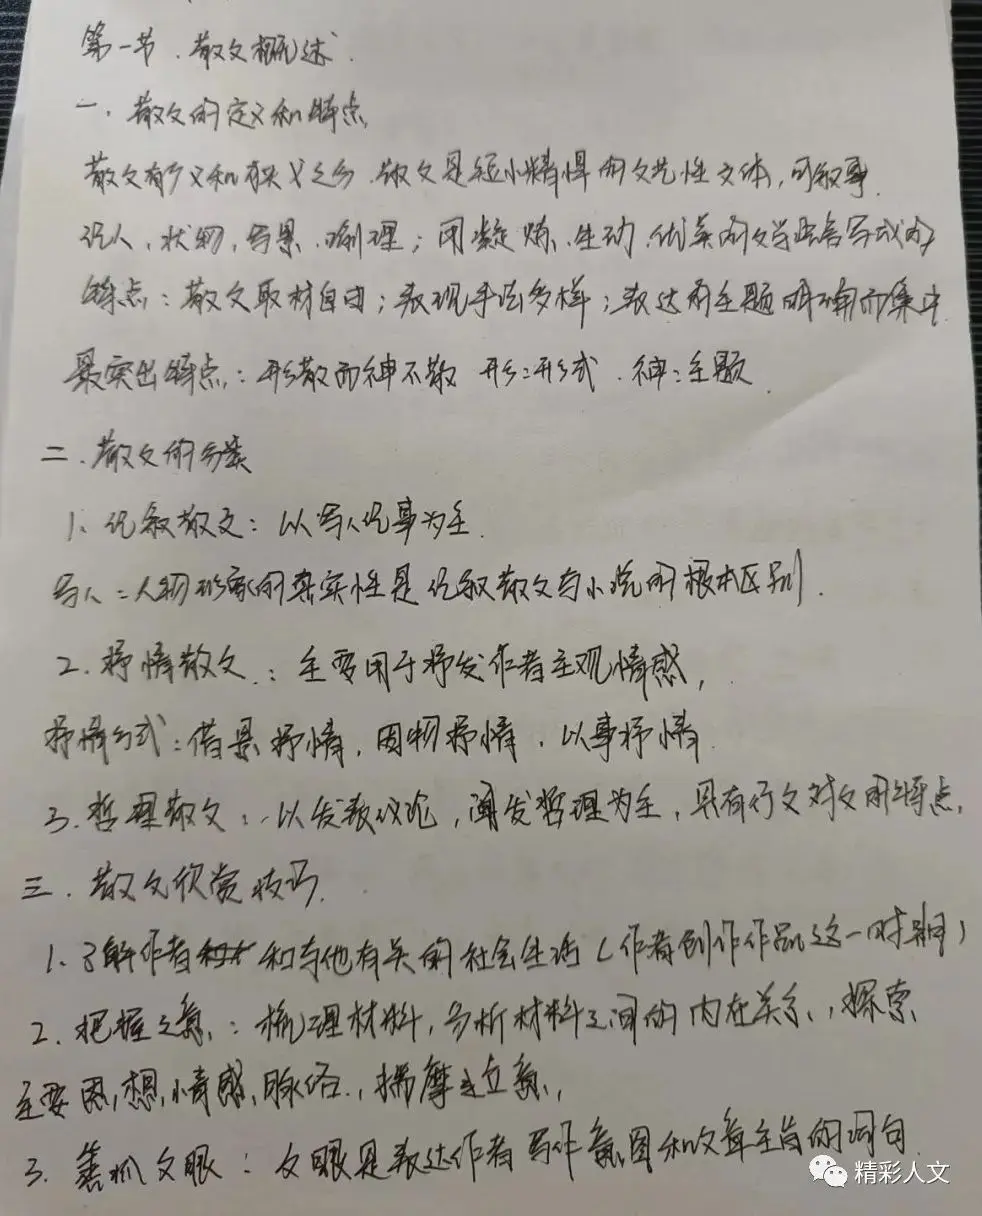 第一节、散文概述.
一、散文的定义和特点
散文有广义和狭义之分、散文是短小精悍的文艺性文体,可叙事
记人、状物,写景、喻理;用凝炼、生动、优美的文学语言写成的
特点:散文取材自由;表现手法多样;表达的主题明确而集中
最突出特点:形散而神不散 形:形式、神:主题
二、散文的分类
1、记叙散文:以写人记事为主.
写人:人物形象的真实性是记叙散文与小说的根本区别.
2.抒情散文:主要用于抒发作者主观情感,
抒情方式:借景抒情,因物抒情、以事抒情.
3.哲理散文:以发表议论,阐发哲理为主,具有行文对文的特点,
三、散文欣赏技巧.
1、了解作者和与他有关的社会生活(作者创作作品这一时期)
2.把握立意:梳理材料,分析材料之间的内在关系,探索
主要思想,情感,脉络,揣摩立意,
3.善抓文眼:文眼是表达作者写作意图和文章主旨的词句.
精彩人文